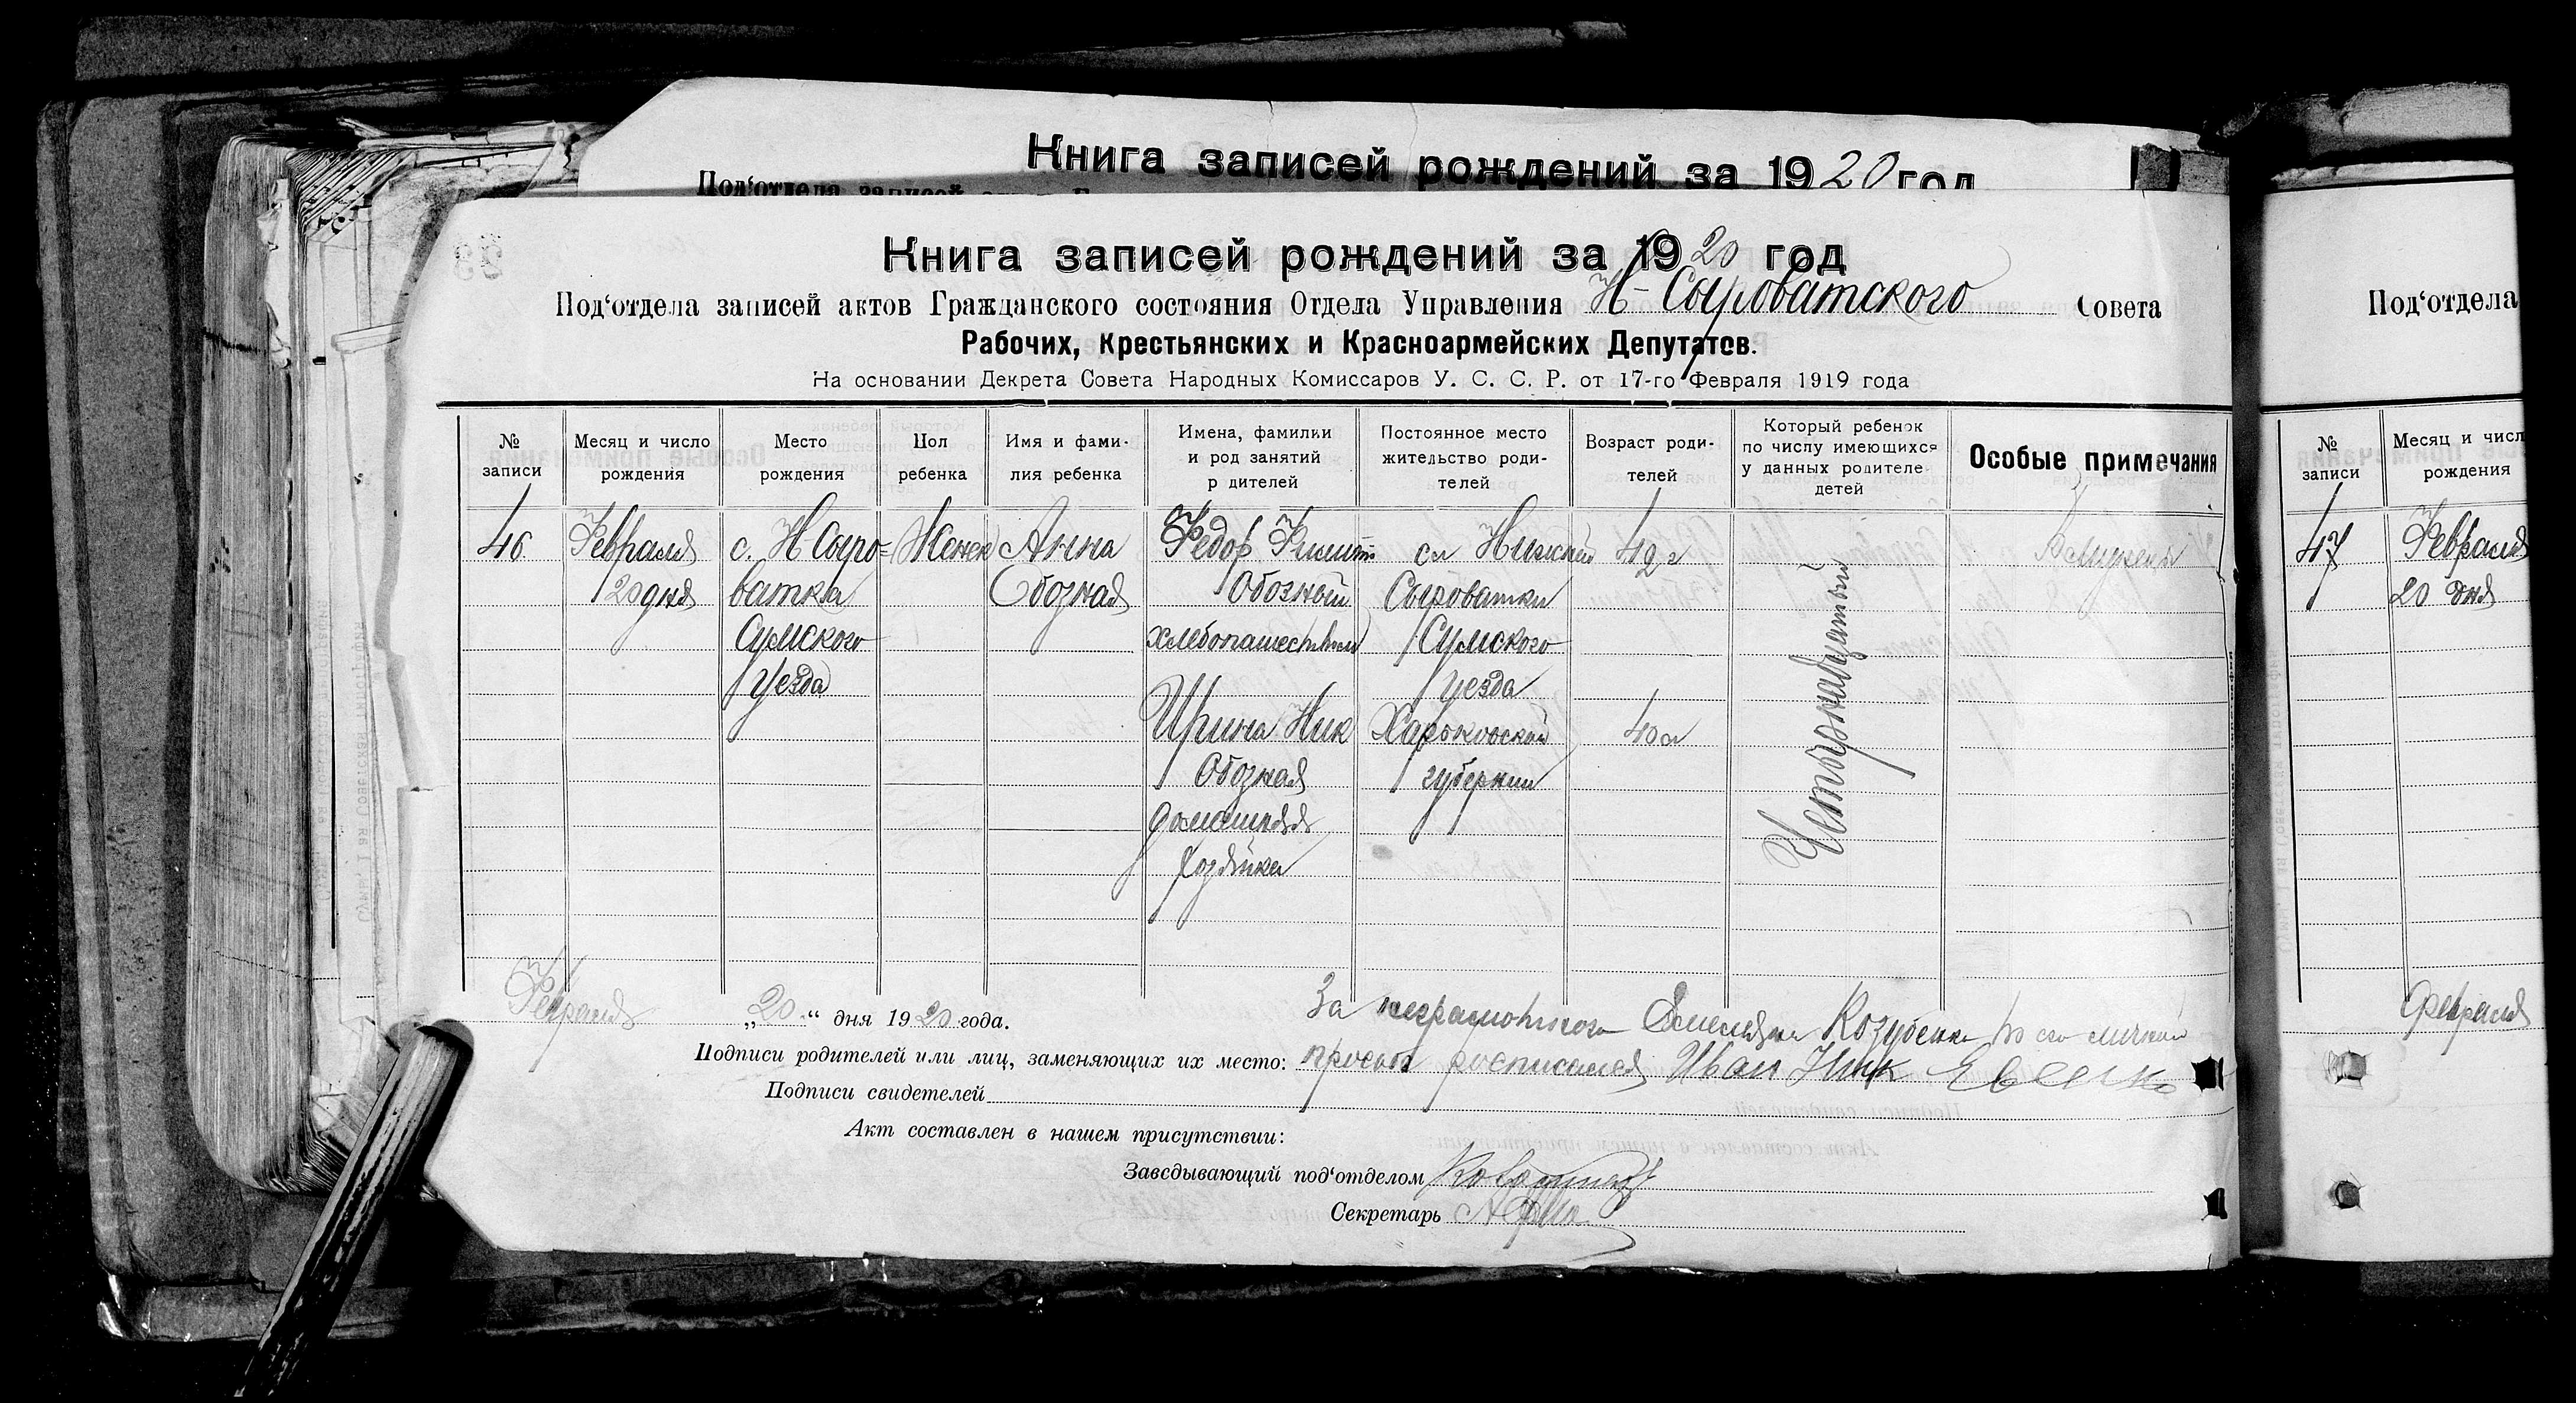 Книга записей рождений за 1920 год
Под'отдела записей
Книга записей рождений за 1920 год
Под'отдела записей актов Гражданского состояния Отдела Управления Н-Сыроватского Совета
Рабочих, Крестьянских и Красноармейских Депутатов.
На основании Декрета Совета Народных Комиссаров У. С. С. Р. от 17-го Февраля 1919 года
№ записи
Месяц и число рождения
Место рождения
Пол ребенка
Имя и фамилия ребенка
Имена, фамилии и род занятий р дителей
Постоянное место жительство родителей
Возраст родителей
Который ребенок по числу имеющихся у данных родителе детей
Особые примечания
46
Февраля
20 дня
с. Н Сыро=
ватка
Сумского
уезда
Женск
Анна
Обозная
Федор
Обозный
Ирина Ник
Обозная
домашняя
хозяйка
сл Нижней
Сыроватки
Сумского
уезда
Харьковской
губернии
42 г
40 л
Четырнадцатый
Февраля „20“ дня 1920 года.
За неграмотного Козубенка по его личной
Подписи родителей или лиц, заменяющих их место: просьбе росписался Иван
Подписи свидетелей
Акт составлен в нашем присутствии:
Заведывающий под'отделом
Секретарь
Под'отдела
№ записи
Месяц и числ
рождения
47
Февраля
20 дня
Февраля